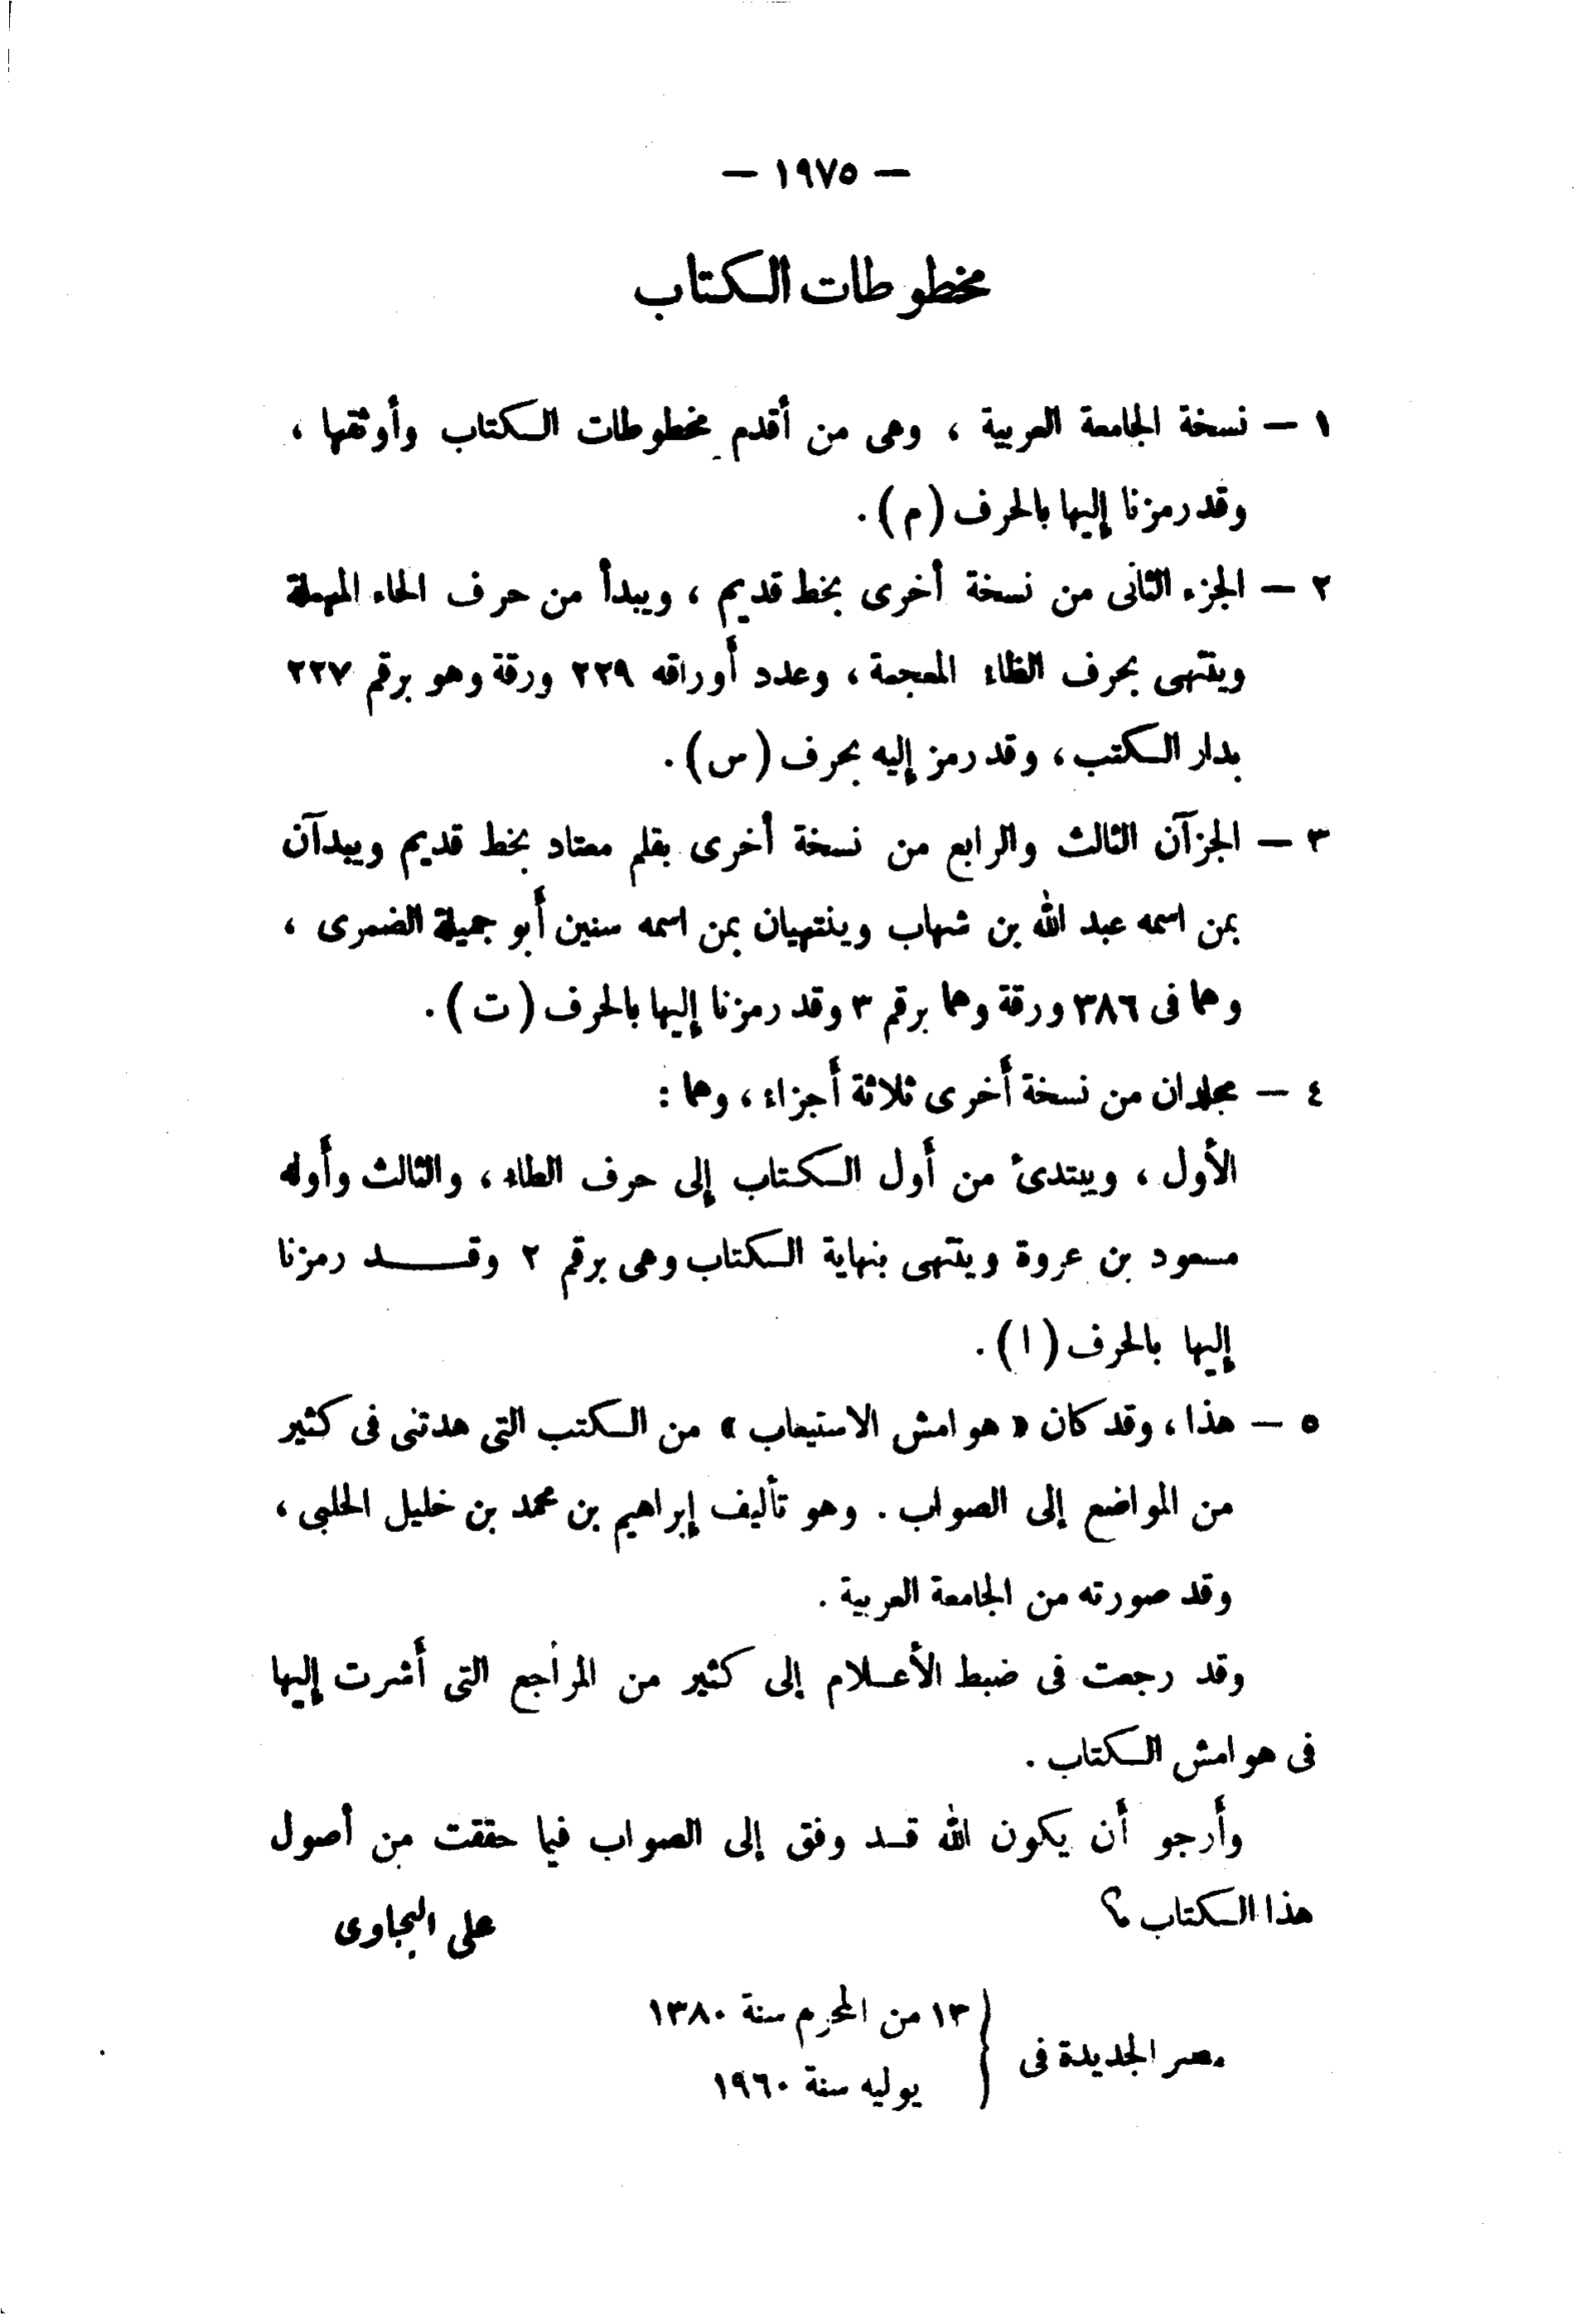 — ١٩٧٥ —
مخطوطات الكتاب
١ — نسخة الجامعة العربية ، وهى من أقدم مخطوطات الكتاب وأوثقها ،
وقد رمزنا إليها بالحرف (م) .
٢ — الجزء الثانى من نسخة أخرى بخط قديم ، ويبدأ من حرف الحاء المهملة
وينتهى بحرف الظاء المعجمة ، وعدد أوراقه ٢٢٩ ورقة وهو برقم ٢٢٧
بدار الكتب ، وقد رمز إليه بحرف (س) .
٣ — الجزآن الثالث والرابع من نسخة أخرى بقلم معتاد بخط قديم ويبدآن
بمن اسمه عبد الله بن شهاب وينتهيان بمن اسمه سنين أبو جميلة الضمرى ،
وهما فى ٣٨٦ ورقة وهما برقم ٣ وقد رمزنا إليها بالحرف (ت) .
٤ — مجلدان من نسخة أخرى ثلاثة أجزاء ، وهما :
الأول ، ويبتدئ من أول الكتاب إلى حرف الطاء ، والثالث وأوله
مسعود بن عروة وينتهى بنهاية الكتاب وهى برقم ٢ وقد رمزنا
إليها بالحرف (ا) .
٥ — هذا ، وقد كان « هوامش الاستيعاب » من الكتب التى هدتنى فى كثير
من المواضع إلى الصواب . وهو تأليف إبراهيم بن محمد بن خليل الحلبى ،
وقد صورته من الجامعة العربية .
وقد رجعت فى ضبط الأعلام إلى كثير من المراجع التى أشرت إليها
فى هوامش الكتاب .
وأرجو أن يكون الله قد وفق إلى الصواب فيما حققت من أصول
هذا الكتاب ؟
على البجاوى
مصر الجديدة فى
١٣ من المحرم سنة ١٣٨٠
يوليه سنة ١٩٦٠